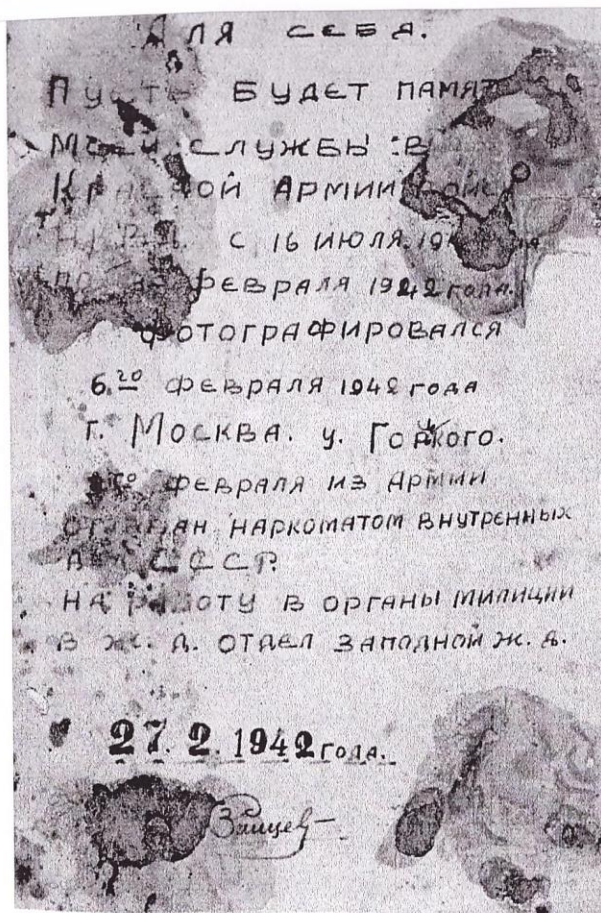 ДЛЯ СЕБЯ.
ПУСТЬ БУДЕТ ПАМЯТ
МОЕЙ СЛУЖБЫ :В
КРАСНОЙ АРМИИ ВОЙС
С 16 ИЮЛЯ
ПО ФЕВРАЛЯ 1942 ГОДА.
ФОТОГРАФИРОВАЛСЯ
6.го ФЕВРАЛЯ 1942 ГОДА
Г. МОСКВА. У. ГОРЬКОГО.
ФЕВРАЛЯ ИЗ АРМИИ
ОТОЗВАН НАРКОМАТОМ ВНУТРЕННЫХ
ДЕЛ СССР.
НА РАБОТУ В ОРГАНЫ МИЛИЦИИ
В Ж. Д. ОТДЕЛ ЗАПОДНОЙ Ж. Д.
27. 2. 1942 ГОДА.
Зайцев